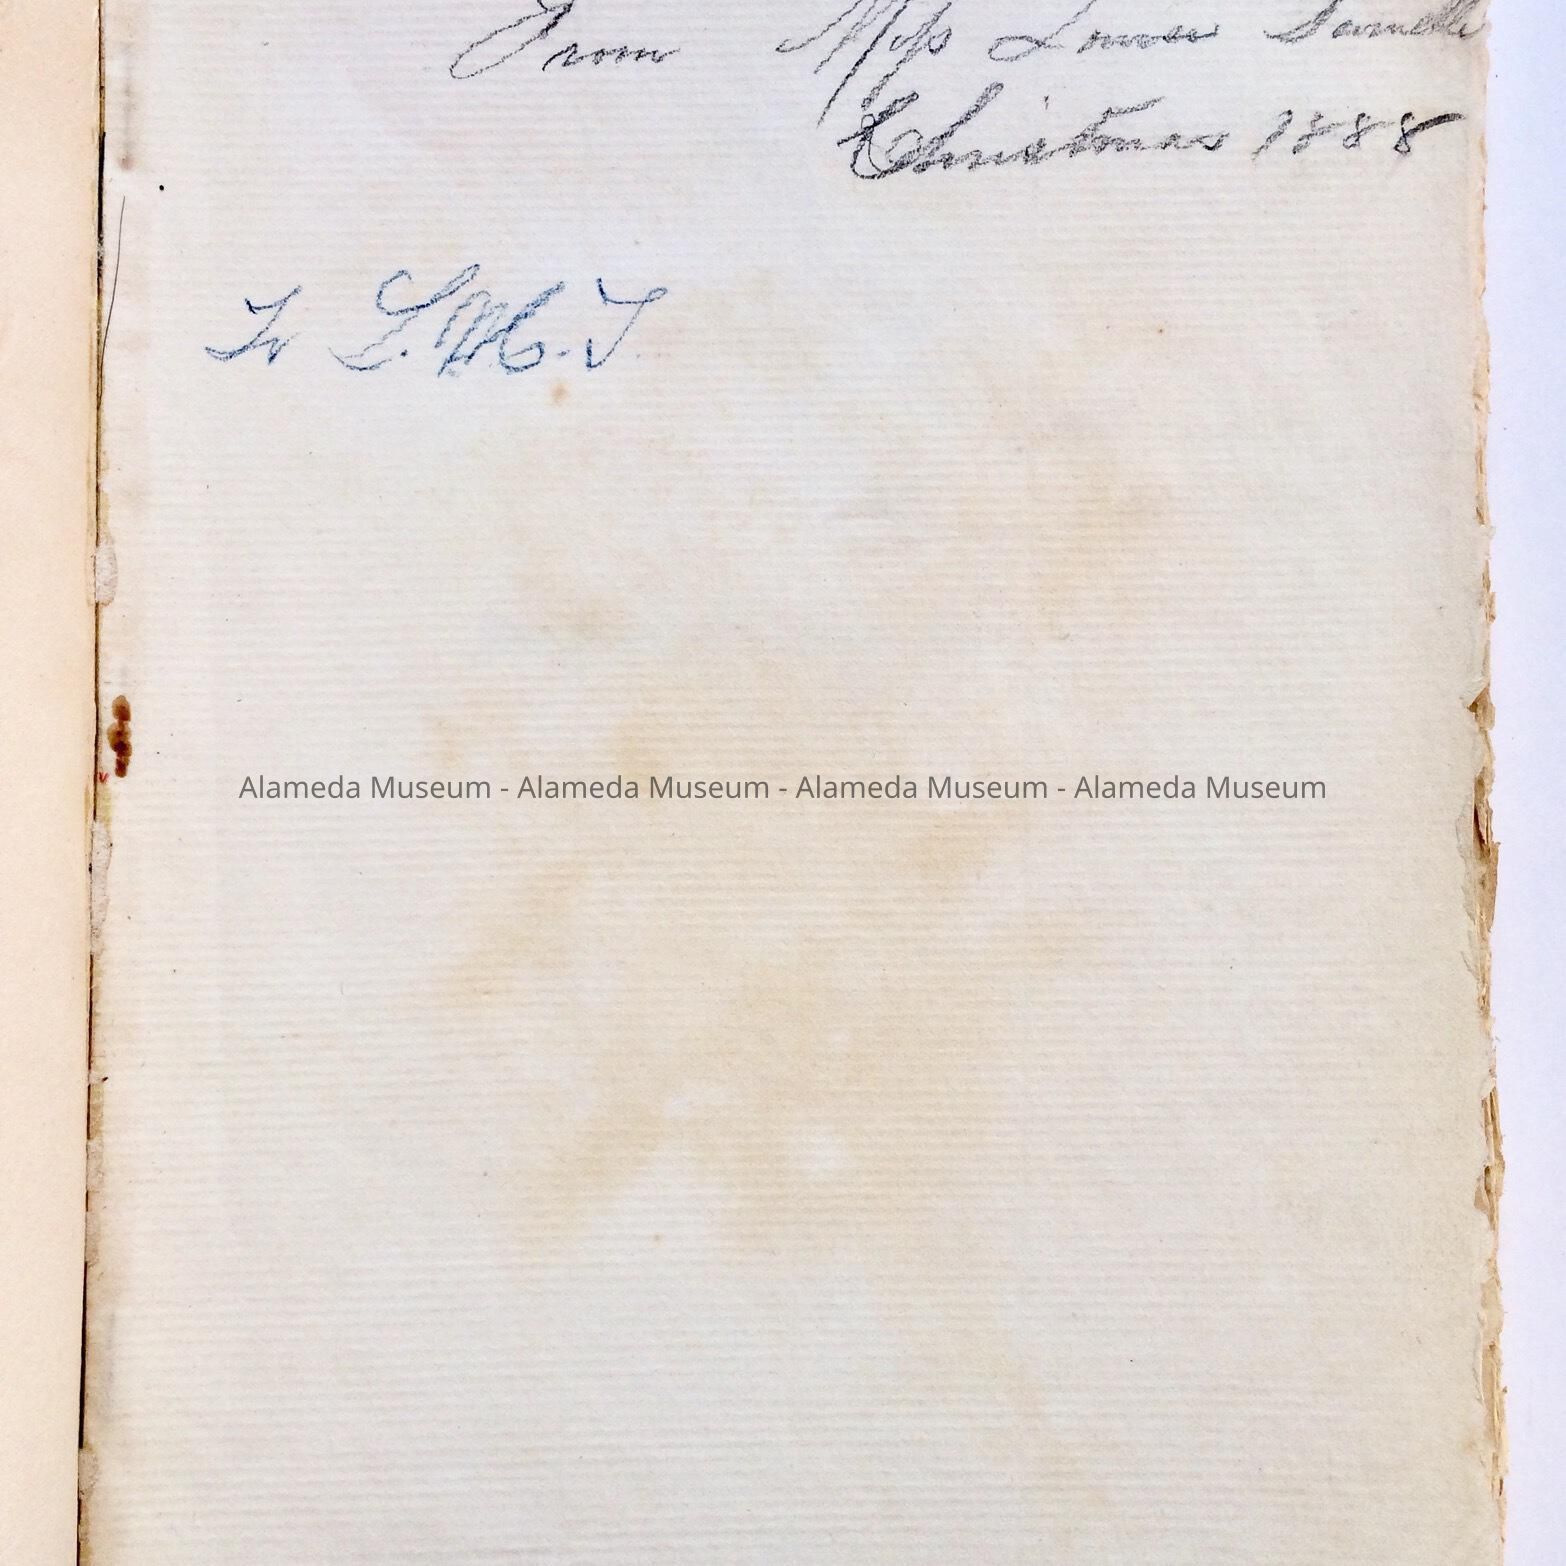 From Miss Louise
Christmas 1888
To L. M. T.
Alameda Museum - Alameda Museum - Alameda Museum - Alameda Museum